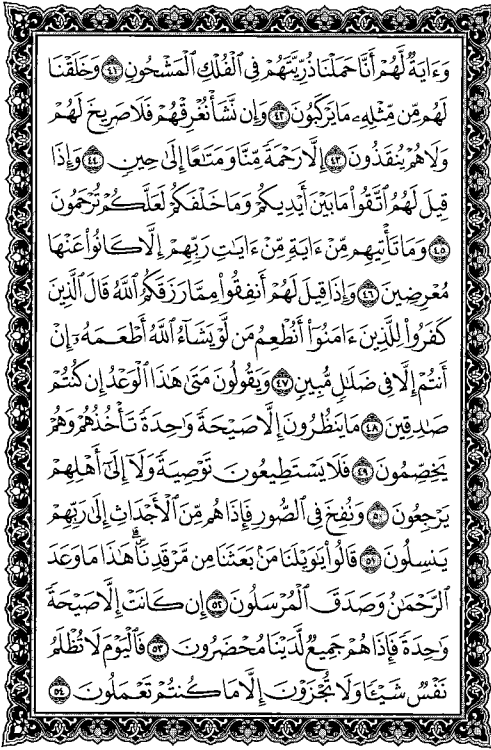 وَءَايَةٌ لَّهُمْ أَنَّا حَمَلْنَا ذُرِّيَّتَهُمْ فِي الْفُلْكِ الْمَشْحُونِ ٤١ وَخَلَقْنَا
لَهُم مِّن مِّثْلِهِۦ مَا يَرْكَبُونَ ٤٢ وَإِن نَّشَأْ نُغْرِقْهُمْ فَلَا صَرِيخَ لَهُمْ
وَلَا هُمْ يُنقَذُونَ ٤٣ إِلَّا رَحْمَةً مِّنَّا وَمَتَٰعًا إِلَىٰ حِينٍ ٤٤ وَإِذَا
قِيلَ لَهُمُ اتَّقُوا۟ مَا بَيْنَ أَيْدِيكُمْ وَمَا خَلْفَكُمْ لَعَلَّكُمْ تُرْحَمُونَ
٤٥ وَمَا تَأْتِيهِم مِّنْ ءَايَةٍ مِّنْ ءَايَٰتِ رَبِّهِمْ إِلَّا كَانُوا۟ عَنْهَا
مُعْرِضِينَ ٤٦ وَإِذَا قِيلَ لَهُمْ أَنفِقُوا۟ مِمَّا رَزَقَكُمُ اللَّهُ قَالَ الَّذِينَ
كَفَرُوا۟ لِلَّذِينَ ءَامَنُوٓا۟ أَنُطْعِمُ مَن لَّوْ يَشَآءُ اللَّهُ أَطْعَمَهُۥٓ إِنْ
أَنتُمْ إِلَّا فِي ضَلَٰلٍ مُّبِينٍ ٤٧ وَيَقُولُونَ مَتَىٰ هَٰذَا الْوَعْدُ إِن كُنتُمْ
صَٰدِقِينَ ٤٨ مَا يَنظُرُونَ إِلَّا صَيْحَةً وَٰحِدَةً تَأْخُذُهُمْ وَهُمْ
يَخِصِّمُونَ ٤٩ فَلَا يَسْتَطِيعُونَ تَوْصِيَةً وَلَآ إِلَىٰٓ أَهْلِهِمْ
يَرْجِعُونَ ٥٠ وَنُفِخَ فِي الصُّورِ فَإِذَا هُم مِّنَ الْأَجْدَاثِ إِلَىٰ رَبِّهِمْ
يَنسِلُونَ ٥١ قَالُوا۟ يَٰوَيْلَنَا مَنۢ بَعَثَنَا مِن مَّرْقَدِنَا ۜ ۗ هَٰذَا مَا وَعَدَ
الرَّحْمَٰنُ وَصَدَقَ الْمُرْسَلُونَ ٥٢ إِن كَانَتْ إِلَّا صَيْحَةً
وَٰحِدَةً فَإِذَا هُمْ جَمِيعٌ لَّدَيْنَا مُحْضَرُونَ ٥٣ فَالْيَوْمَ لَا تُظْلَمُ
نَفْسٌ شَيْـًٔا وَلَا تُجْزَوْنَ إِلَّا مَا كُنتُمْ تَعْمَلُونَ ٥٤